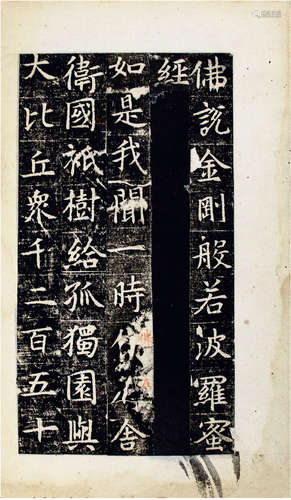 佛説金剛般若波羅蜜
經
如是我聞一時佛在舍
衛國祇樹給孤獨園與
大比丘衆千二百五十